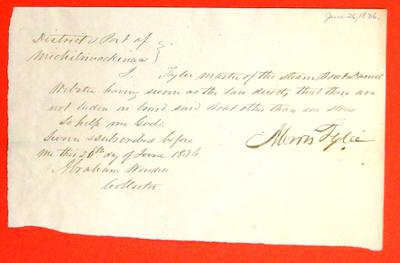 June 26, 1836.
District & Port of
Michilimackinac
I Tyler Master of the Steam Boat Daniel
Webster having sworn as the law directs that there are
not laden on board said Boat other than sea stores
So help me God.
Sworn & subscribed before
me this 26th day of June 1836
Abraham Wendell
Collector
Tyler